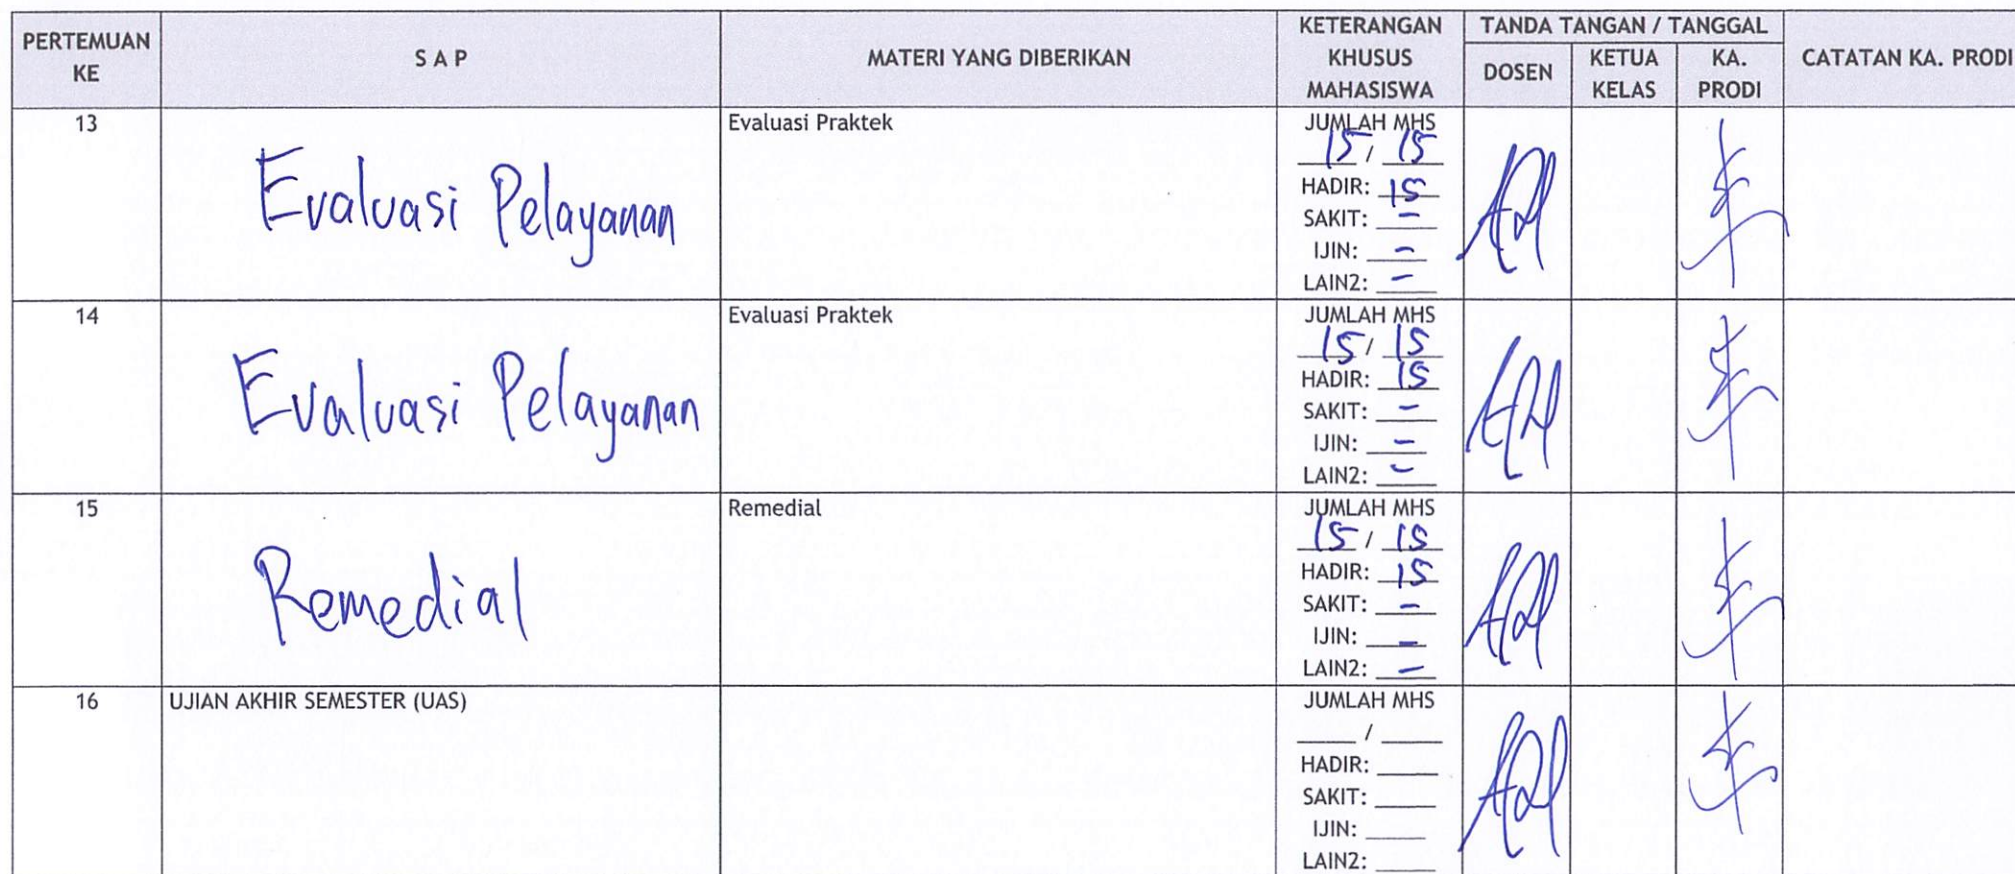 PERTEMUAN KE
S A P
MATERI YANG DIBERIKAN
KETERANGAN KHUSUS MAHASISWA
TANDA TANGAN / TANGGAL
DOSEN
KETUA KELAS
KA. PRODI
CATATAN KA. PRODI
13
Evaluasi Pelayanan
Evaluasi Praktek
JUMLAH MHS
15 / 15
HADIR: 15
SAKIT: -
IJIN: -
LAIN2: -
14
Evaluasi Pelayanan
Evaluasi Praktek
JUMLAH MHS
15 / 15
HADIR: 15
SAKIT: -
IJIN: -
LAIN2: -
15
Remedial
Remedial
JUMLAH MHS
15 / 15
HADIR: 15
SAKIT: -
IJIN: -
LAIN2: -
16
UJIAN AKHIR SEMESTER (UAS)
JUMLAH MHS
____ / ____
HADIR: ____
SAKIT: ____
IJIN: ____
LAIN2: ____